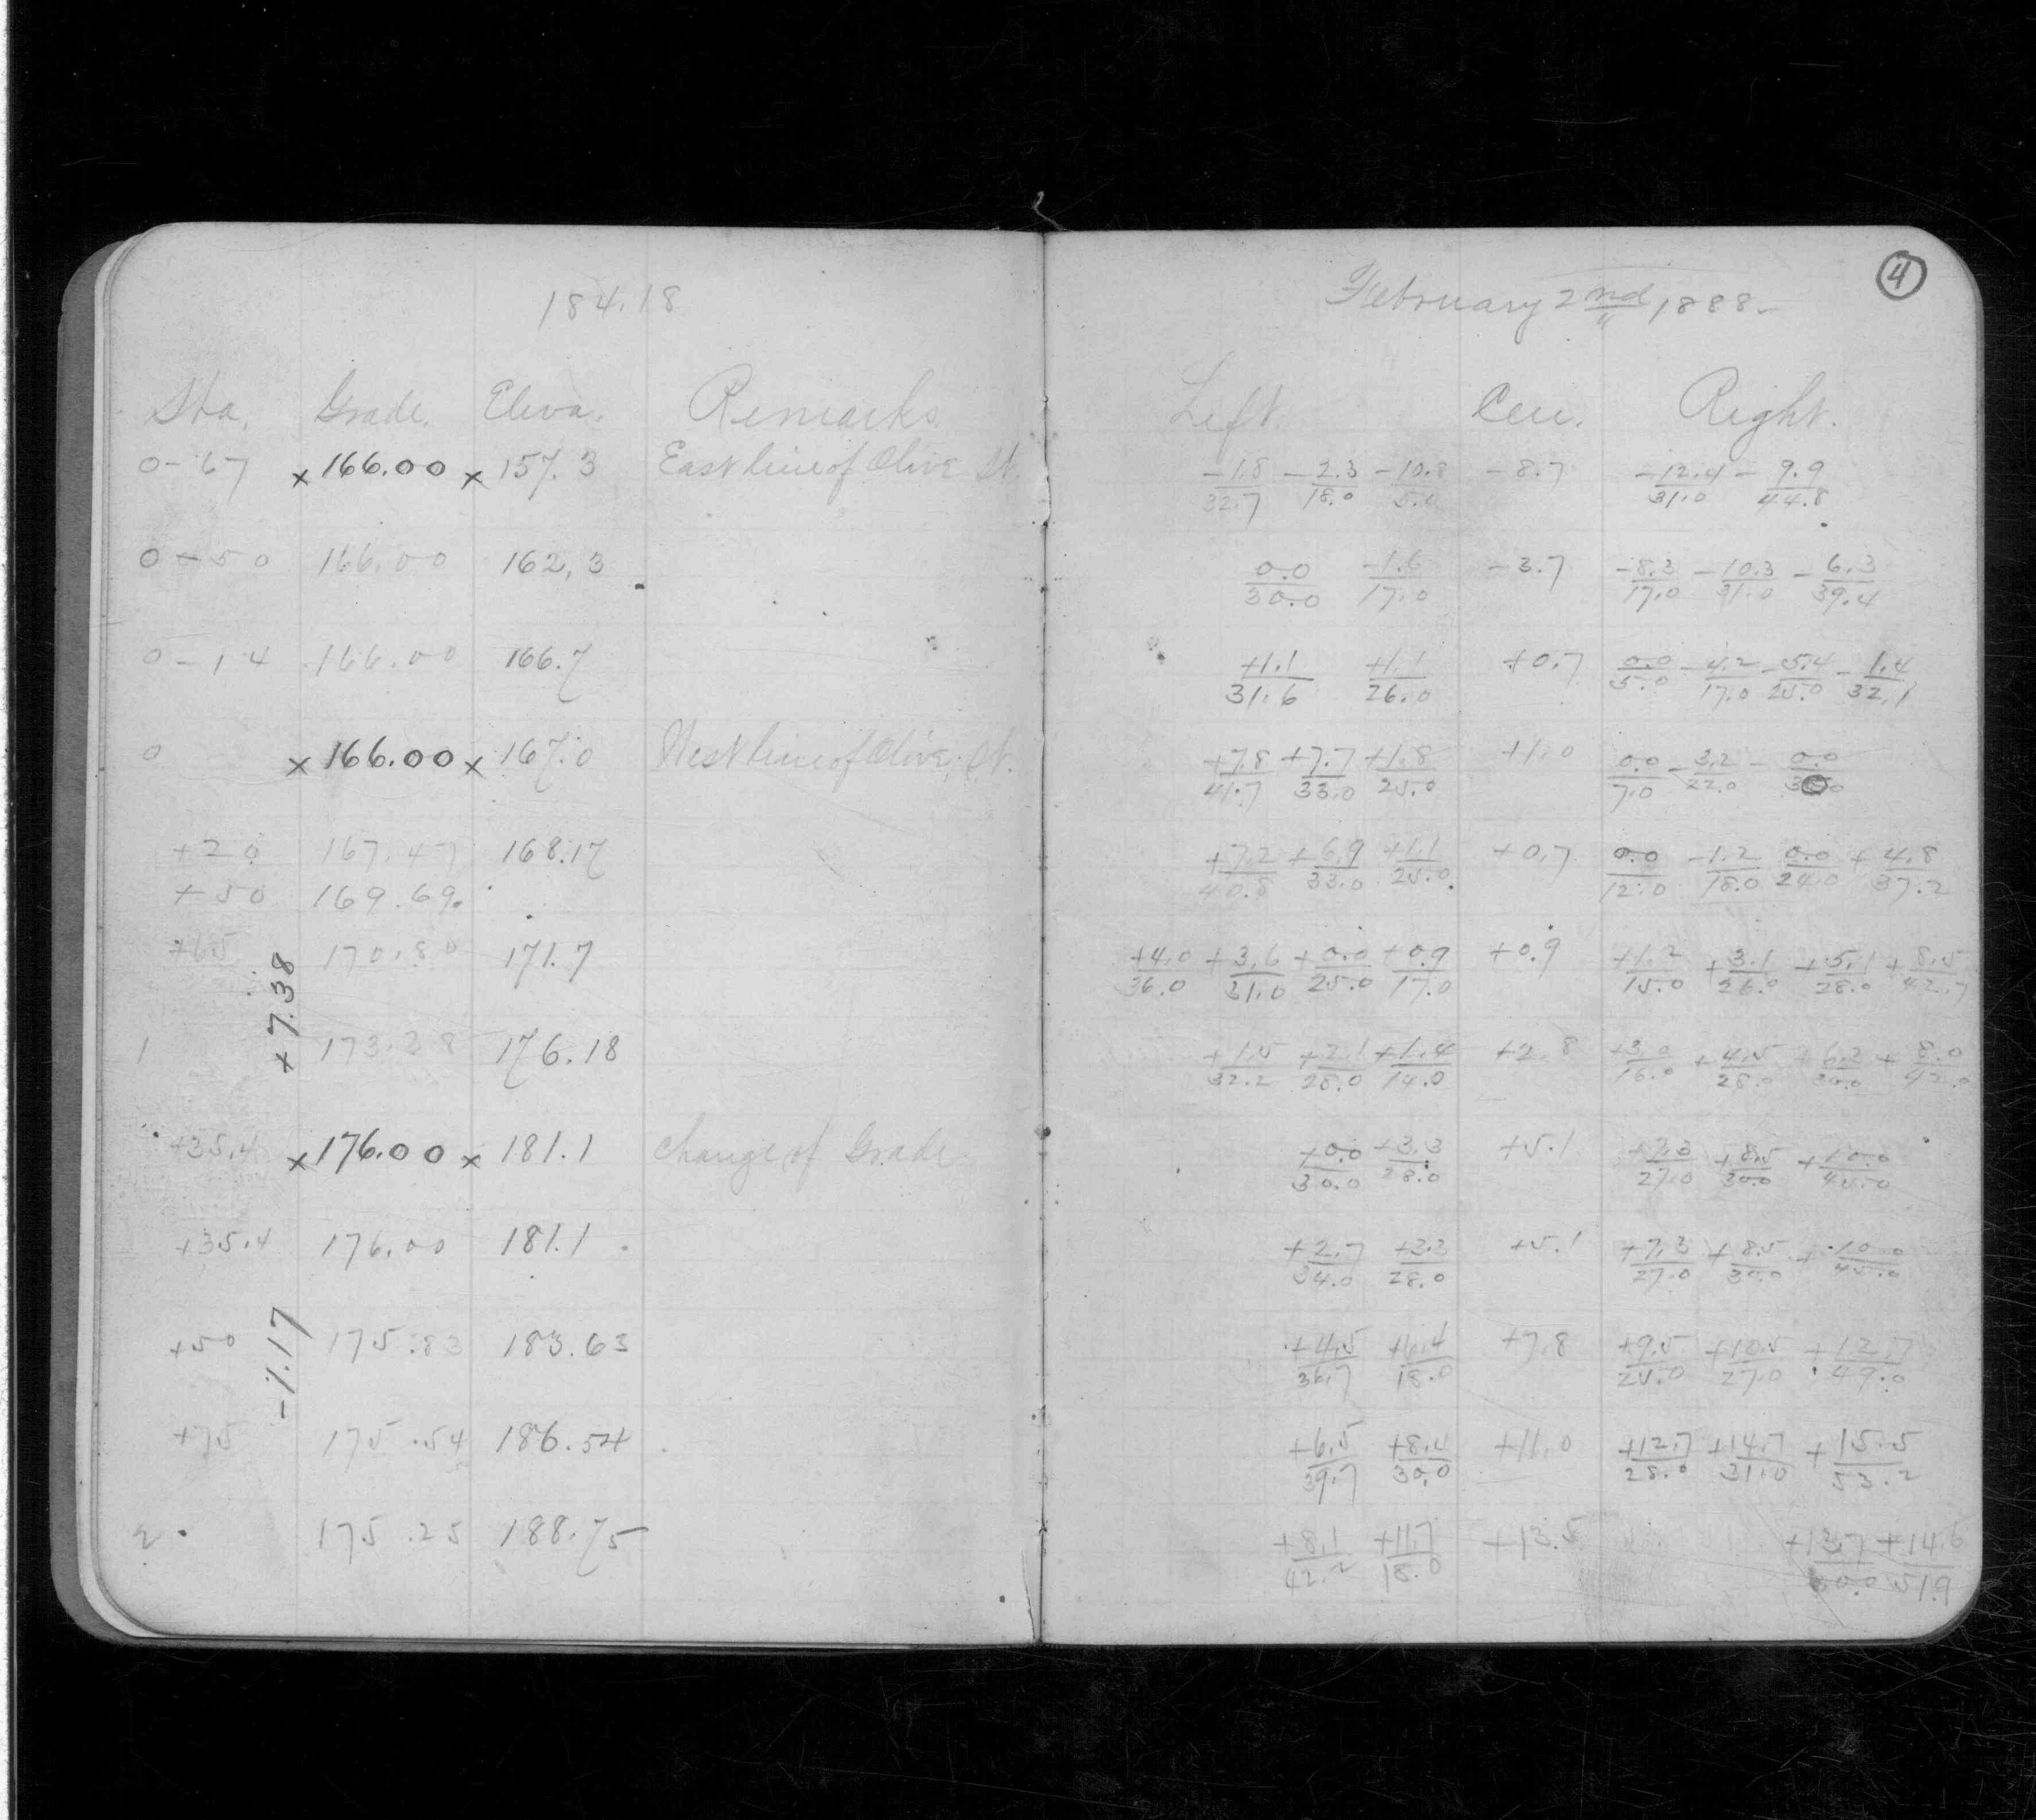 184.18
Sta. Grade. Eleva. Remarks.
0-67 x 166.00 x 157.3 East line of Olive St.
0-50 166.00 162.3
0-14 166.00 166.7
0 x 166.00 x 167.0 West line of Olive St.
+20 167.47 168.17
+50 169.69
+65 170.80 171.7
+7.38
1 173.38 176.18
+35.4 x 176.00 x 181.1 Change of Grade
+35.4 176.00 181.1
-1.17
+50 175.83 183.63
+75 175.54 186.54
2 175.25 188.75
4
February 2nd 1888-
Left. Cen. Right.
-1.8 -2.3 -10.8 -8.7 -12.4 -9.9
32.7 18.0 5.0 31.0 44.8
0.0 -1.6 -3.7 -8.3 -10.3 -6.3
30.0 17.0 17.0 31.0 39.4
+1.1 +1.1 +0.7 0.0 -4.2 -5.4 -1.4
31.6 26.0 5.0 17.0 25.0 32.1
+7.8 +7.7 +1.8 +1.0 0.0 -3.2 - 0.0
41.7 33.0 25.0 7.0 22.0
+7.2 +6.9 +1.1 +0.7 0.0 -1.2 0.0 +4.8
40.8 33.0 25.0 12.0 18.0 24.0 37.2
+4.0 +3.6 +0.0 +0.9 +0.9 +1.2 +3.1 +5.1 +8.5
36.0 31.0 25.0 17.0 15.0 26.0 28.0 42.7
+1.5 +2.1 +1.4 +2.8 +3.0 +4.5 +6.3 +8.0
32.2 28.0 14.0 16.0 28.0 30.0 42.0
+0.0 +3.3 +5.1 +7.3 +8.5 +10.0
30.0 28.0 27.0 30.0 45.0
+2.7 +3.3 +5.1 +7.3 +8.5 +10.0
34.0 28.0 27.0 30.0 45.0
+4.5 +6.4 +7.8 +9.5 +10.5 +12.7
36.7 18.0 25.0 27.0 49.0
+6.5 +8.4 +11.0 +12.7 +14.7 +15.5
39.7 30.0 28.0 31.0 53.2
+8.1 +11.7 +13.5 +13.7 +14.6
42.2 18.0 30.0 51.9